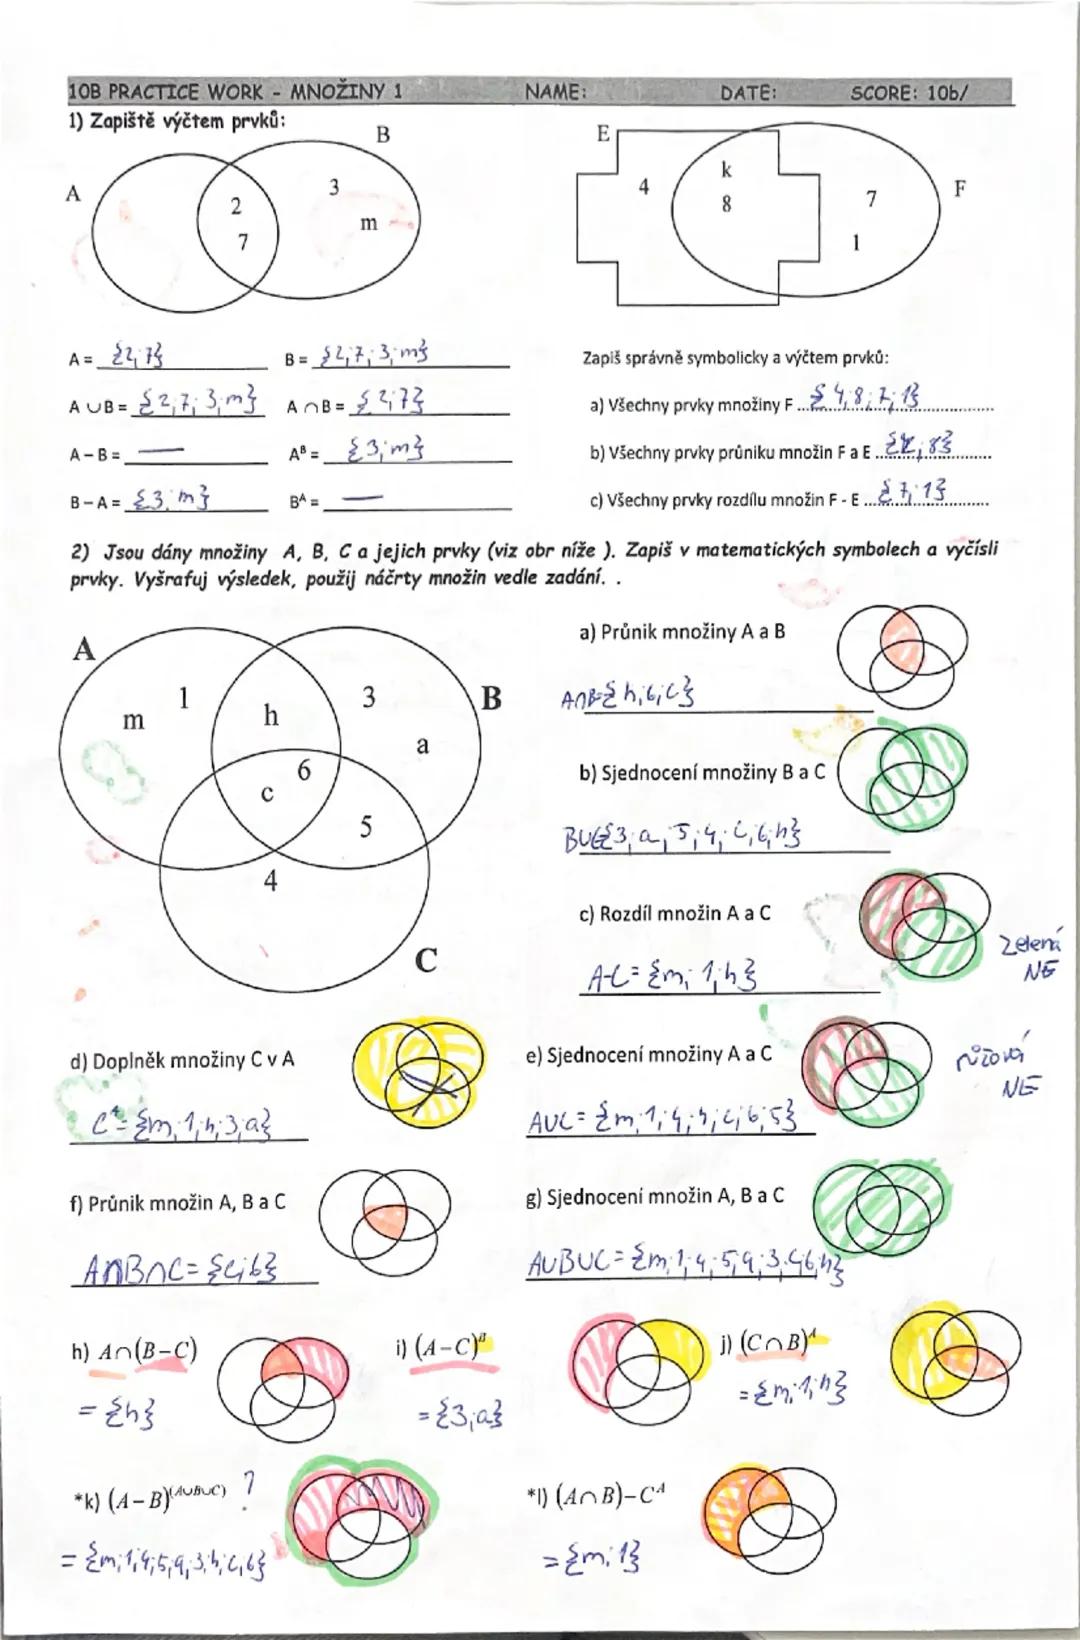 10B PRACTICE WORK - MNOŽINY 1 NAME: DATE: SCORE: 10b/
1) Zapiště výčtem prvků:
A B 2 7 3 m
E F 4 k 8 7 1
A = {2; 7} B = {2; 7; 3; m}
A ∪ B = {2; 7; 3; m} A ∩ B = {2; 7}
A – B = — Aᴮ = {3; m}
B – A = {3; m} Bᴬ = —
Zapiš správně symbolicky a výčtem prvků:
a) Všechny prvky množiny F ... {4; 8; 7; 1}
b) Všechny prvky průniku množin F a E ... {k; 8}
c) Všechny prvky rozdílu množin F - E ... {7; 1}
2) Jsou dány množiny A, B, C a jejich prvky (viz obr níže ). Zapiš v matematických symbolech a vyčísli
prvky. Vyšrafuj výsledek, použij náčrty množin vedle zadání. .
A B C m 1 h 3 a 6 c 5 4
a) Průnik množiny A a B
A∩B={h; 6; c}
b) Sjednocení množiny B a C
B∪C={3; a; 5; 4; c; 6; h}
c) Rozdíl množin A a C
A-C= {m; 1; h}
Zelená
NE
d) Doplněk množiny C v A
Cᴬ= {m; 1; h; 3; a}
e) Sjednocení množiny A a C
A∪C= {m; 1; 4; h; c; 6; 5}
růžová
NE
f) Průnik množin A, B a C
A∩B∩C= {c; 6}
g) Sjednocení množin A, B a C
A∪B∪C= {m; 1; 4; 5; a; 3; c; 6; h}
h) A∩(B−C)
= {h}
i) (A−C)ᴮ
= {3; a}
j) (C∩B)ᴬ
= {m; 1; h}
*k) (A−B)⁽ᴬ∪ᴮ∪C⁾ ?
= {m; 1; 4; 5; a; 3; h; c; 6}
*l) (A∩B)−Cᴬ
= {m; 1}